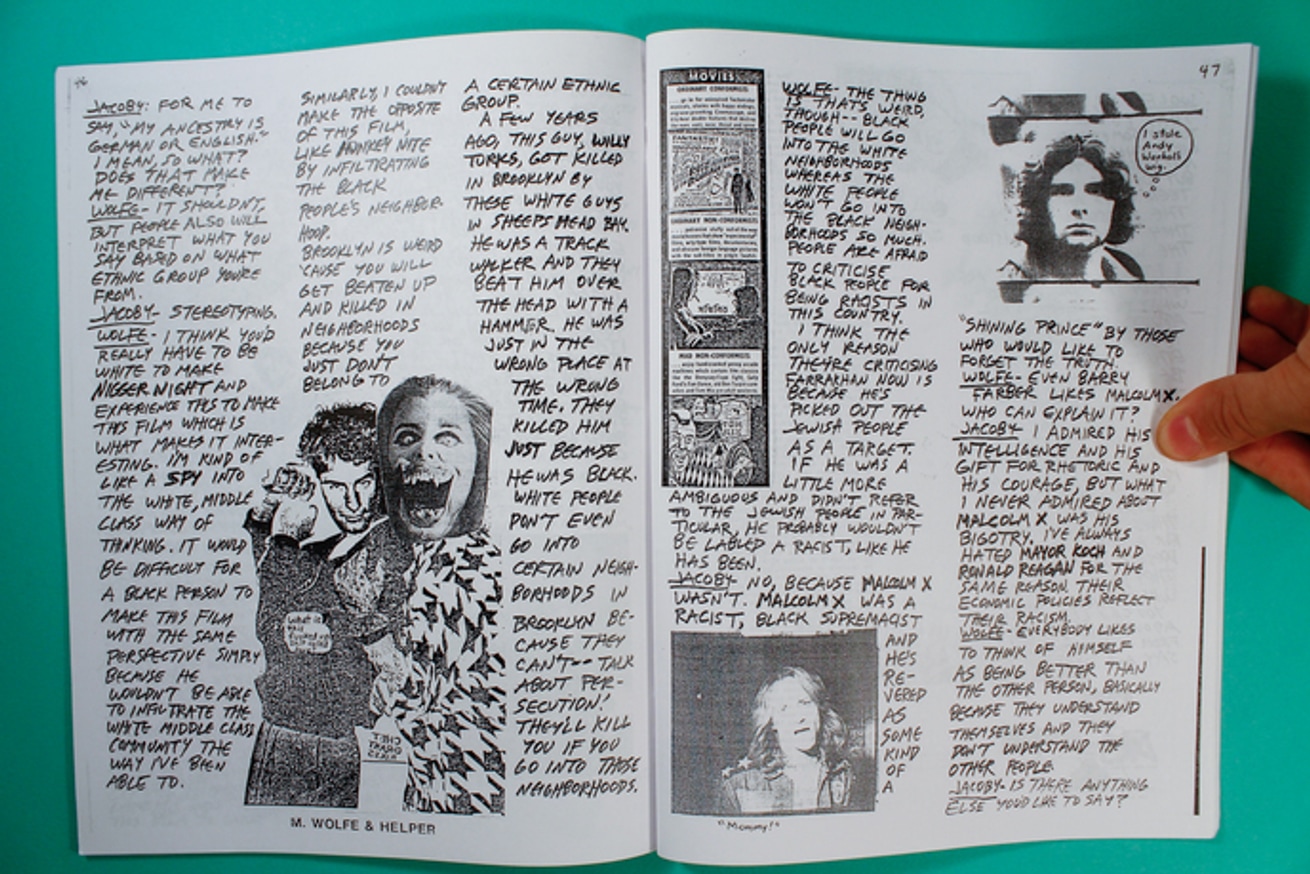 46
JACOBY: FOR ME TO
SAY, "MY ANCESTRY IS
GERMAN OR ENGLISH."
I MEAN, SO WHAT?
DOES THAT MAKE
ME DIFFERENT?
WOLFE- IT SHOULDN'T,
BUT PEOPLE ALSO WILL
INTERPRET WHAT YOU
SAY BASED ON WHAT
ETHNIC GROUP YOU'RE
FROM.
JACOBY- STEREOTYPING.
WOLFE- I THINK YOU'D
REALLY HAVE TO BE
WHITE TO MAKE
NIGGER NIGHT AND
EXPERIENCE THIS TO MAKE
THIS FILM WHICH IS
WHAT MAKES IT INTER-
ESTING. I'M KIND OF
LIKE A SPY INTO
THE WHITE, MIDDLE
CLASS WAY OF
THINKING. IT WOULD
BE DIFFICULT FOR
A BLACK PERSON TO
MAKE THIS FILM
WITH THE SAME
PERSPECTIVE SIMPLY
BECAUSE HE
WOULDN'T BE ABLE
TO INFILTRATE THE
WHITE MIDDLE CLASS
COMMUNITY THE
WAY I'VE BEEN
ABLE TO.
SIMILARLY, I COULDN'T
MAKE THE OPPOSITE
OF THIS FILM,
LIKE HONKEY NITE
BY INFILTRATING
THE BLACK
PEOPLE'S NEIGHBOR-
HOOD.
BROOKLYN IS WEIRD
'CAUSE YOU WILL
GET BEATEN UP
AND KILLED IN
NEIGHBORHOODS
BECAUSE YOU
JUST DON'T
BELONG TO
A CERTAIN ETHNIC
GROUP.
A FEW YEARS
AGO, THIS GUY, WILLY
TURKS, GOT KILLED
IN BROOKLYN BY
THESE WHITE GUYS
IN SHEEPSHEAD BAY.
HE WAS A TRACK
WALKER AND THEY
BEAT HIM OVER
THE HEAD WITH A
HAMMER. HE WAS
JUST IN THE
WRONG PLACE AT
THE WRONG
TIME. THEY
KILLED HIM
JUST BECAUSE
HE WAS BLACK.
WHITE PEOPLE
DON'T EVEN
GO INTO
CERTAIN NEIGH-
BORHOODS IN
BROOKLYN BE-
CAUSE THEY
CAN'T-- TALK
ABOUT PER-
SECUTION!
THEY'LL KILL
YOU IF YOU
GO INTO THOSE
NEIGHBORHOODS.
M. WOLFE & HELPER
47
MOVIES
ORDINARY CONFORMISTS
ORDINARY NON-CONFORMISTS
MAD NON-CONFORMISTS
WOLFE- THE THING
IS THAT'S WEIRD,
THOUGH-- BLACK
PEOPLE WILL GO
INTO THE WHITE
NEIGHBORHOODS
WHEREAS THE
WHITE PEOPLE
WON'T GO INTO
THE BLACK NEIGH-
BORHOODS SO MUCH.
PEOPLE ARE AFRAID
TO CRITICISE
BLACK PEOPLE FOR
BEING RACISTS IN
THIS COUNTRY.
I THINK THE
ONLY REASON
THEY'RE CRITICISING
FARRAKHAN NOW IS
BECAUSE HE'S
PICKED OUT THE
JEWISH PEOPLE
AS A TARGET.
IF HE WAS A
LITTLE MORE
AMBIGUOUS AND DIDN'T REFER
TO THE JEWISH PEOPLE IN PAR-
TICULAR, HE PROBABLY WOULDN'T
BE LABLED A RACIST, LIKE HE
HAS BEEN.
JACOBY- NO, BECAUSE MALCOLM X
WASN'T. MALCOLM X WAS A
RACIST, BLACK SUPREMACIST
AND
HE'S
RE-
VERED
AS
SOME
KIND
OF
A
"Mommy!"
I stole
Andy
Warhol's
wig.
"SHINING PRINCE" BY THOSE
WHO WOULD LIKE TO
FORGET THE TRUTH.
WOLFE- EVEN BARRY
FARBER LIKES MALCOLM X.
WHO CAN EXPLAIN IT?
JACOBY- I ADMIRED HIS
INTELLIGENCE AND HIS
GIFT FOR RHETORIC AND
HIS COURAGE, BUT WHAT
I NEVER ADMIRED ABOUT
MALCOLM X WAS HIS
BIGOTRY. I'VE ALWAYS
HATED MAYOR KOCH AND
RONALD REAGAN FOR THE
SAME REASON. THEIR
ECONOMIC POLICIES REFLECT
THEIR RACISM.
WOLFE- EVERYBODY LIKES
TO THINK OF HIMSELF
AS BEING BETTER THAN
THE OTHER PERSON, BASICALLY
BECAUSE THEY UNDERSTAND
THEMSELVES AND THEY
DON'T UNDERSTAND THE
OTHER PEOPLE.
JACOBY- IS THERE ANYTHING
ELSE YOU'D LIKE TO SAY?